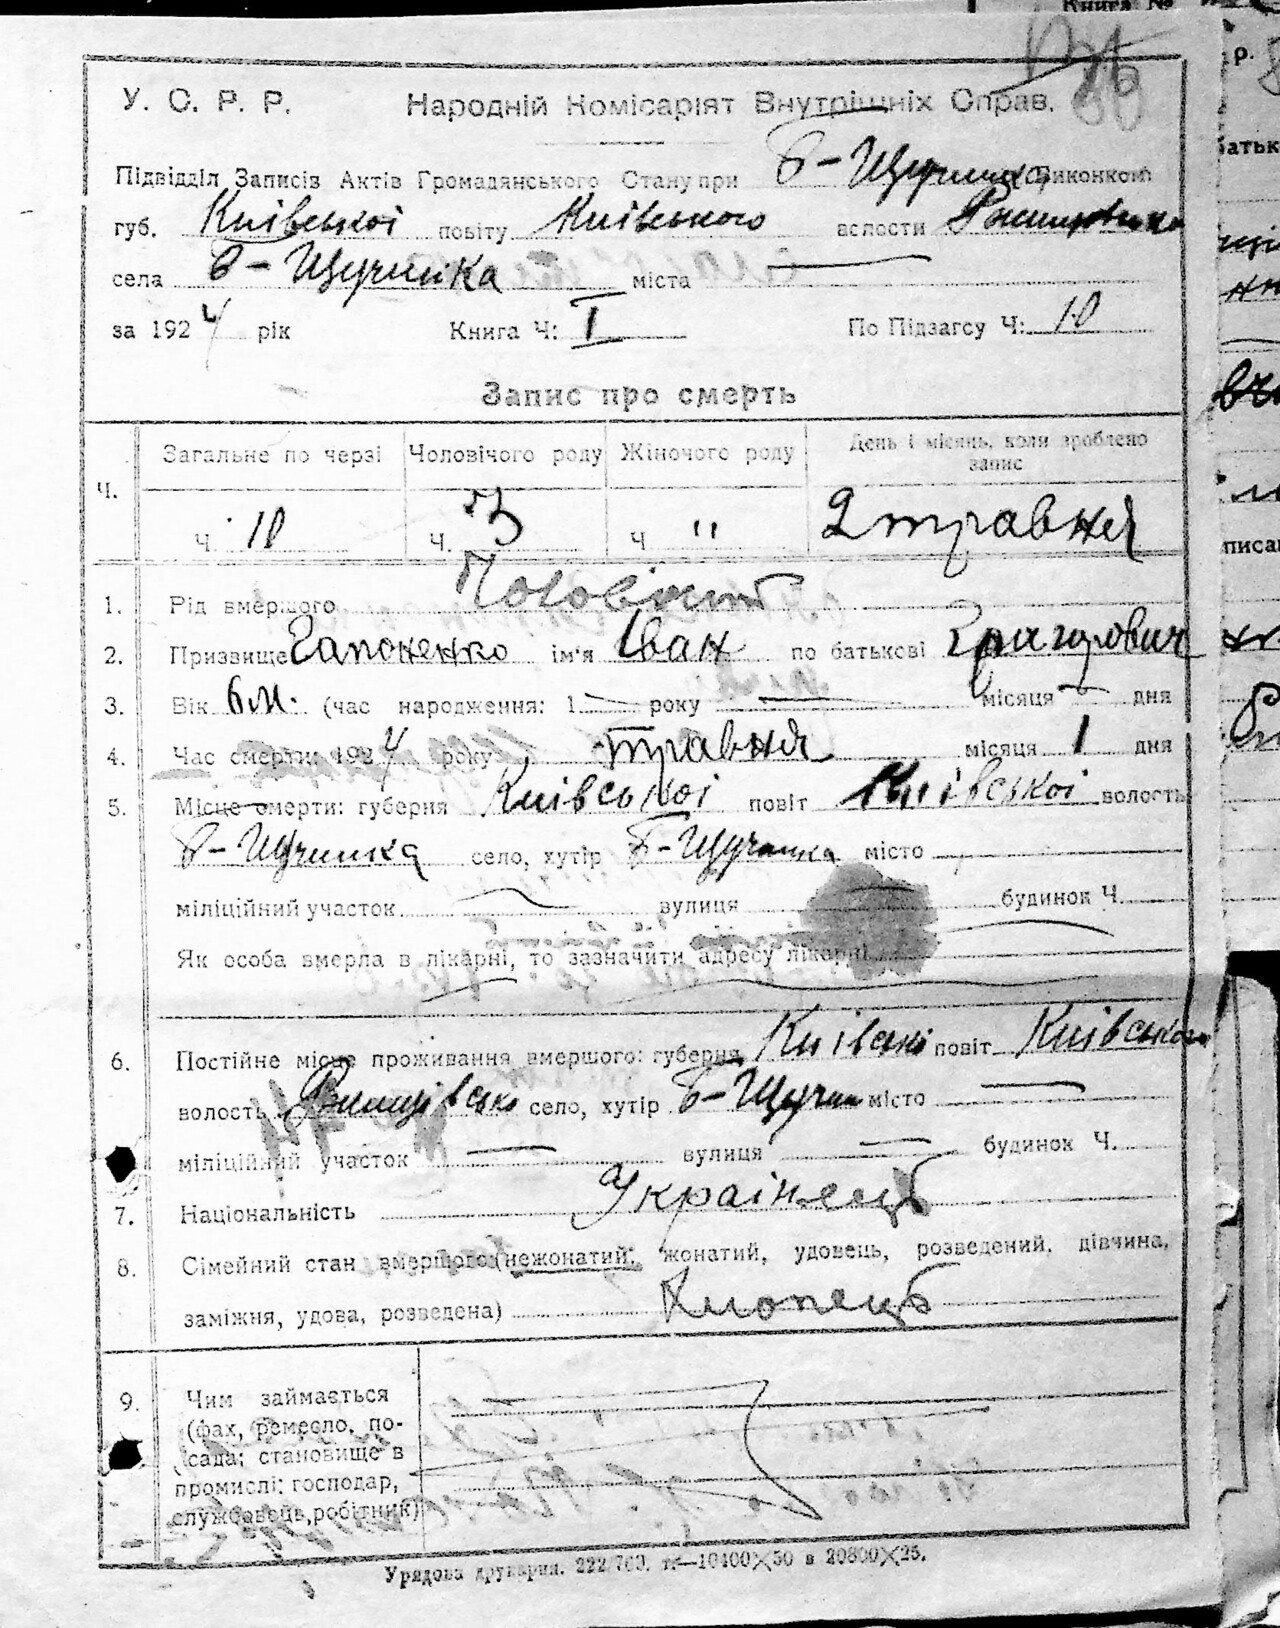 Книга №
У. С. Р. Р. Народній Комісаріят Внутрішніх Справ.
Підвідділ Записів Актів Громадянського Стану при Б-Щучинка Виконкомі
губ. Київської повіту Київського волости
села Б-Щучинка міста
за 1924 рік Книга Ч: I По Підзагсу Ч: 10
Запис про смерть
Загальне по черзі Чоловічого роду Жіночого роду День і місяць, коли зроблено запис
Ч.
Ч 10 Ч. 3 Ч " 2 травня
1. Рід вмершого Чоловічий
2. Призвище Гапоненко ім'я Іван по батькові Григорович
3. Вік 6 м. (час народження: 1 року місяця дня
4. Час смерти: 1924 року травня місяця 1 дня
5. Місце смерти: губерня Київської повіт Київської волость
Б-Щучинка село, хутір Б-Щучинка місто
міліційний участок вулиця будинок Ч.
Як особа вмерла в лікарні, то зазначити адресу лікарні
6. Постійне місце проживання вмершого: губерня повіт Київського
волость село, хутір Б-Щучин місто
міліційний участок вулиця будинок Ч.
7. Національність Українець
8. Сімейний стан вмершого (нежонатий, жонатий, удовець, розведений, дівчина,
заміжня, удова, розведена) Хлопець
9. Чим займається
(фах, ремесло, по-
сада; становище в
промислі: господар,
службовець, робітник)
Урядова друкарня. 222/760. т.—10400×50 в 20800×25.